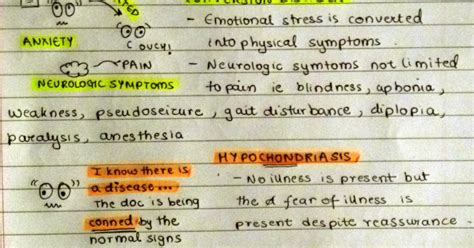 - Emotional stress is converted
ANXIETY
OUCH!
into physical symptoms.
PAIN
- Neurologic symtoms not limited
NEUROLOGIC SYMPTOMS
to pain ie blindness, aphonia,
weakness, pseudoseizure, gait disturbance, diplopia,
paralysis, anesthesia
HYPOCHONDRIASIS
I know there is
a disease...
The doc is being
conned by the
normal signs
- No illness is present but
the fear of illness is
present despite reassurance.